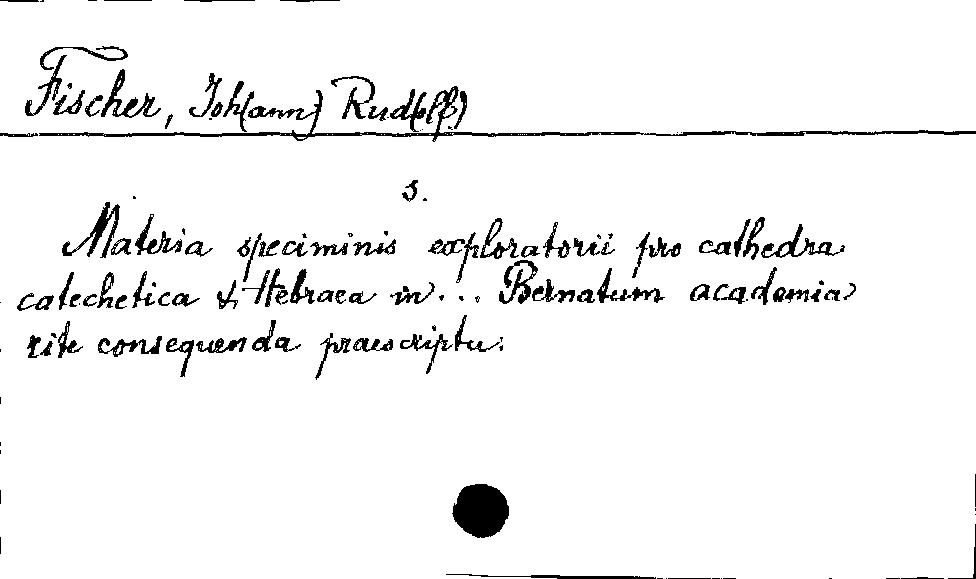 Fischer, Joh(ann) Rud(olf)
s.
Materia speciminis exploratorii pro cathedra
catechetica & Hebraea in... Bernatum academia
rite consequenda praescripta.